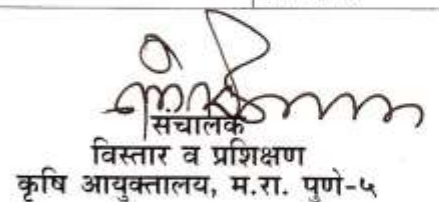 संचालक
विस्तार व प्रशिक्षण
कृषि आयुक्तालय, म.रा. पुणे-५